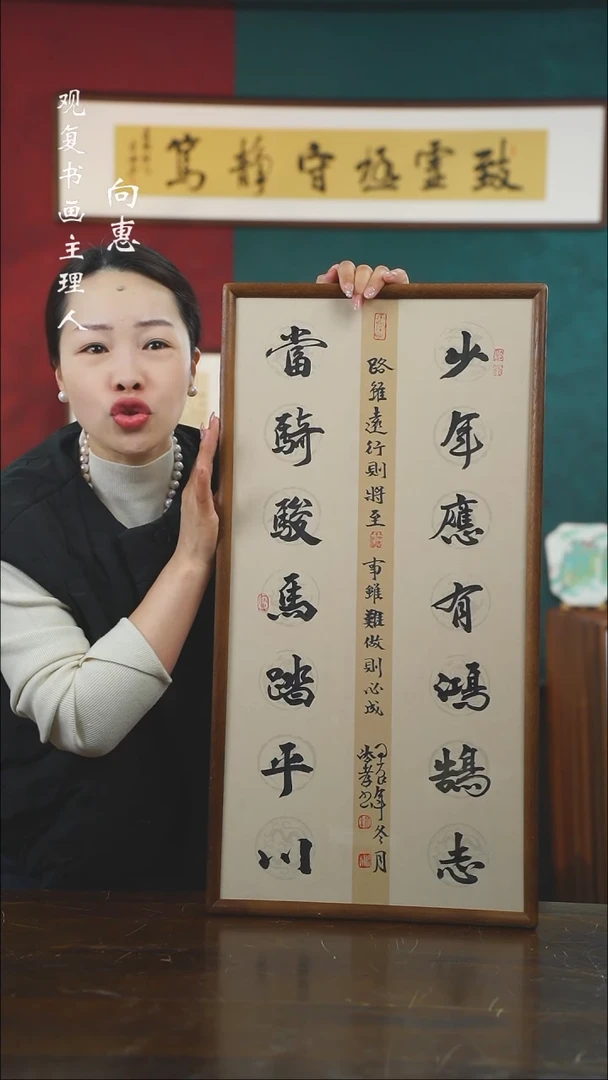 观复书画主理人
向惠
致灵极守静笃
少年應有鴻鵠志
當騎駿馬踏平川
路雖遠行則將至
事雖難做則必成
年冬月